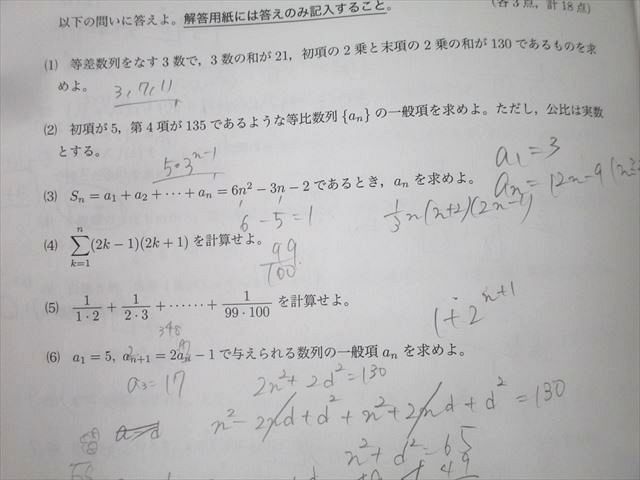 以下の問いに答えよ。解答用紙には答えのみ記入すること。 (各3点,計18点)
(1) 等差数列をなす3数で,3数の和が21,初項の2乗と末項の2乗の和が130であるものを求
めよ。
3, 7, 11
(2) 初項が5,第4項が135であるような等比数列{aₙ}の一般項を求めよ。ただし,公比は実数
とする。
5・3ⁿ⁻¹
a₁=3
(3) Sₙ = a₁ + a₂ + ⋯ + aₙ = 6n² − 3n − 2 であるとき,aₙ を求めよ。
aₙ=12n−9
6−5=1
1/3 n(n+2)(2n−1)
(4) ∑ₖ₌₁ⁿ (2k − 1)(2k + 1) を計算せよ。
99/100
(5) 1/(1·2) + 1/(2·3) + ⋯⋯ + 1/(99·100) を計算せよ。
1+2ⁿ⁺¹
348
(6) a₁ = 5, aₙ₊₁ = 2aₙ − 1 で与えられる数列の一般項 aₙ を求めよ。
a₃=17
2n²+2d²=130
n²−2nd+d²+n²+2nd+d²=130
n²+d²=65
49